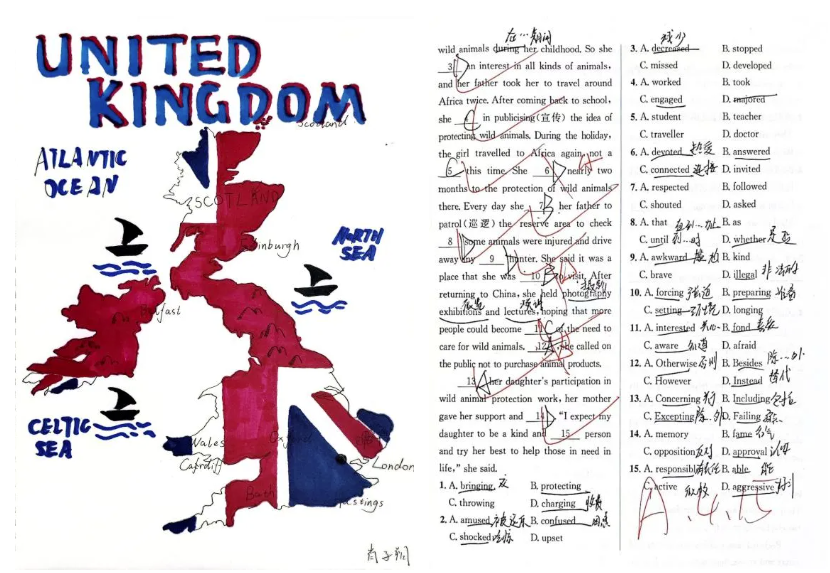 UNITED
KINGDOM
Scotland
ATLANTIC
OCEAN
SCOTLAND
Edinburgh
NORTH
SEA
Belfast
CELTIC
SEA
Wales
Oxford
Cardiff
London
Bath
Hastings
在…期间
wild animals during her childhood. So she
3 D an interest in all kinds of animals,
and her father took her to travel around
Africa twice. After coming back to school,
she C in publicising(宣传) the idea of
protecting wild animals. During the holiday,
the girl travelled to Africa again, not a
5 this time. She 6 D nearly two
months to the protection of wild animals
there. Every day she 7 B her father to
patrol(巡逻) the reserve area to check
8 D some animals were injured and drive
away any 9 D hunter. She said it was a
place that she was 10 to visit. After
returning to China, she held photography
摄影
展览 演讲
exhibitions and lectures, hoping that more
people could become 11 C of the need to
care for wild animals. 12 , she called on
the public not to purchase animal products.
13 A her daughter's participation in
wild animal protection work, her mother
gave her support and 14 D "I expect my
daughter to be a kind and 15 person
and try her best to help those in need in
life," she said.
1. A. bringing B. protecting
C. throwing D. charging 收费
2. A. amused B. confused 困惑
C. shocked D. upset
减少
3. A. decreased B. stopped
C. missed D. developed
4. A. worked B. took
C. engaged D. majored
5. A. student B. teacher
C. traveller D. doctor
6. A. devoted 热爱 B. answered
C. connected 连接 D. invited
7. A. respected B. followed
C. shouted D. asked
8. A. that B. as
C. until 到…时 D. whether 是否
9. A. awkward B. kind
C. brave D. illegal 非法的
10. A. forcing 强迫 B. preparing 准备
C. setting D. longing
11. A. interested B. fond 喜爱
C. aware 知道 D. afraid
12. A. Otherwise 否则 B. Besides 除…外
C. However D. Instead 替代
13. A. Concerning 关于 B. Including 包括
C. Excepting 除…外 D. Failing
14. A. memory B. fame 名气
C. opposition 反对 D. approval 认可
15. A. responsible B. able 能
C. active 积极 D. aggressive
A. 4. 15